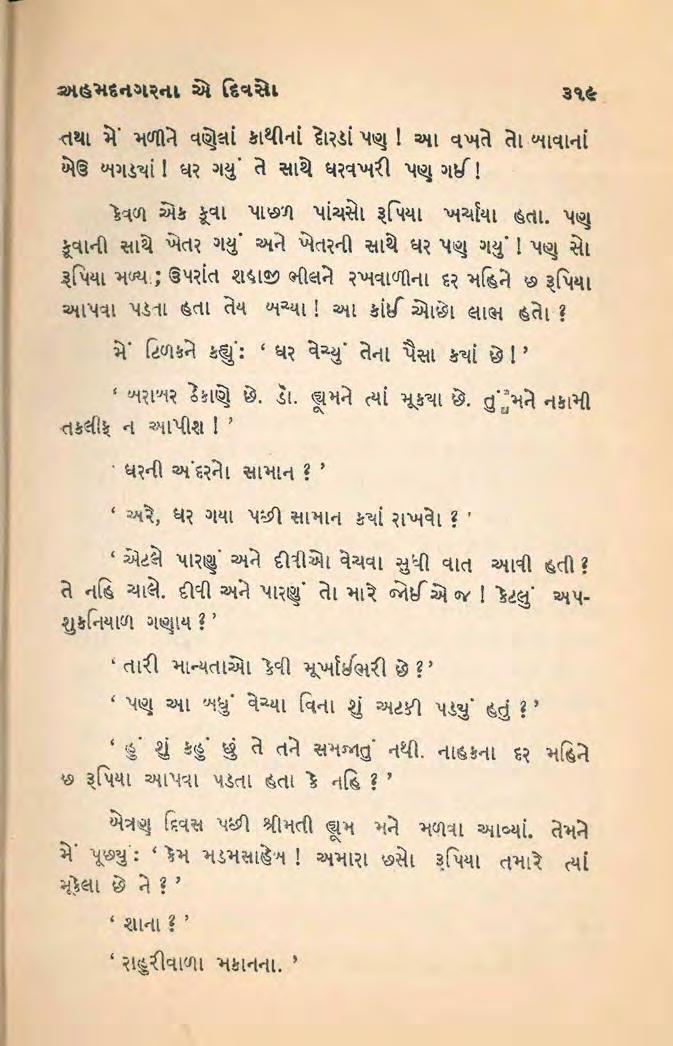 અહમદનગરના એ દિવસો ૩૧૯
તથા મેં મળીને વણેલાં કાથીનાં દોરડાં પણ ! આ વખતે તો બાવાનાં
બેઉ બગડ્યાં ! ઘર ગયું તે સાથે ઘરવખરી પણ ગઈ !
કેવળ એક કૂવા પાછળ પાંચસો રૂપિયા ખર્ચાયા હતા. પણ
કૂવાની સાથે ખેતર ગયું અને ખેતરની સાથે ઘર પણ ગયું ! પણ સો
રૂપિયા મળ્યા; ઉપરાંત શહાજી ભીલને રખવાળીના દર મહિને છ રૂપિયા
આપવા પડતા હતા તેય બચ્યા ! આ કાંઈ ઓછો લાભ હતો ?
મેં ટિળકને કહ્યું: ‘ ઘર વેચ્યું તેના પૈસા ક્યાં છે ! ’
‘ બરાબર ઠેકાણે છે. ડૉ. હ્યૂમને ત્યાં મૂક્યા છે. તું મને નકામી
તકલીફ ન આપીશ ! ’
‘ ઘરની અંદરનો સામાન ? ’
‘ અરે, ઘર ગયા પછી સામાન ક્યાં રાખવો ? ’
‘ એટલે પારણું અને દીવીઓ વેચવા સુધી વાત આવી હતી ?
તે નહિ ચાલે. દીવી અને પારણું તો મારે જોઈએ જ ! કેટલું અપ-
શુકનિયાળ ગણાય ? ’
‘ તારી માન્યતાઓ કેવી મૂર્ખાઈભરી છે ? ’
‘ પણ આ બધું વેચ્યા વિના શું અટકી પડ્યું હતું ? ’
‘ હું શું કહું છું તે તને સમજાતું નથી. નાહકના દર મહિને
છ રૂપિયા આપવા પડતા હતા કે નહિ ? ’
બેત્રણ દિવસ પછી શ્રીમતી હ્યૂમ મને મળવા આવ્યાં. તેમને
મેં પૂછ્યું: ‘ કેમ મડમસાહેબ ! અમારા છસો રૂપિયા તમારે ત્યાં
મૂકેલા છે ને ? ’
‘ શાના ? ’
‘ રાહુરીવાળા મકાનના. ’